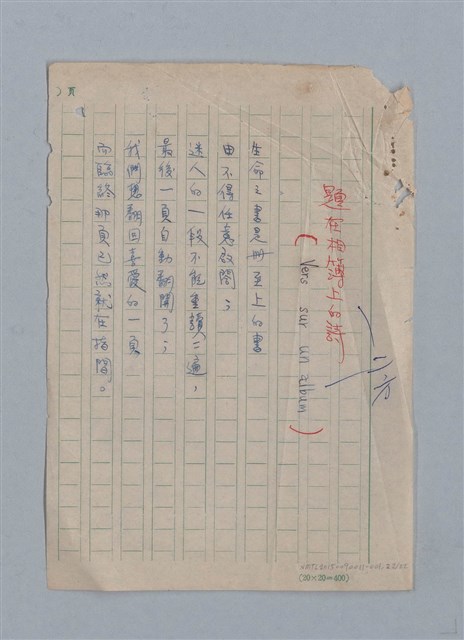 題在相簿上的詩
(Vers sur un album)
生命之書是冊至上的書
由不得任意啟閤；
迷人的一段不能重讀二遍，
最後一頁自動翻開了；
我們想翻回喜愛的一頁
而臨終那頁已然就在指間。
頁
(20×20=400)